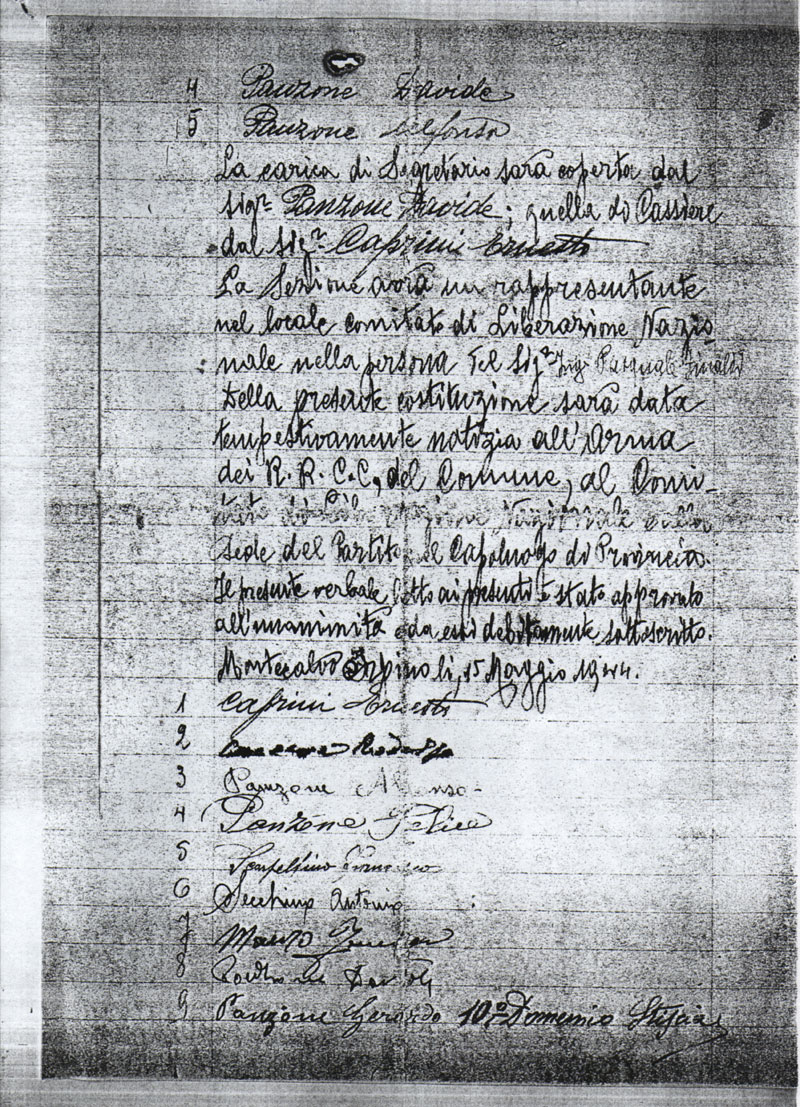 4 Panzone Davide
5 Panzone Alfonso
La carica di Segretario sarà coperta dal
Sigr Panzone Davide; quella di Cassiere
dal Sigr. Caprini Ernesto
La Sezione avrà un rappresentante
nel locale comitato di Liberazione Nazio
nale nella persona del Sigr Ing. Pasquale
Della presente costituzione sarà data
tempestivamente notizia all'Arma
dei R. R. C.C, del Comune, al Comi-
Nazionale
Sede del Partito Capoluogo di Provincia.
Il presente verbale letto ai presenti è stato approvato
all'unanimità e da essi debitamente sottoscritto.
Montecalvo Irpino li, 15 Maggio 1944.
1 Caprini Ernesto
2 Rodolfo
3 Panzone Alfonso-
4 Panzone Felice
5
6 Antonio
7
8
9 Panzone Gerardo 10° Domenico Stiscia